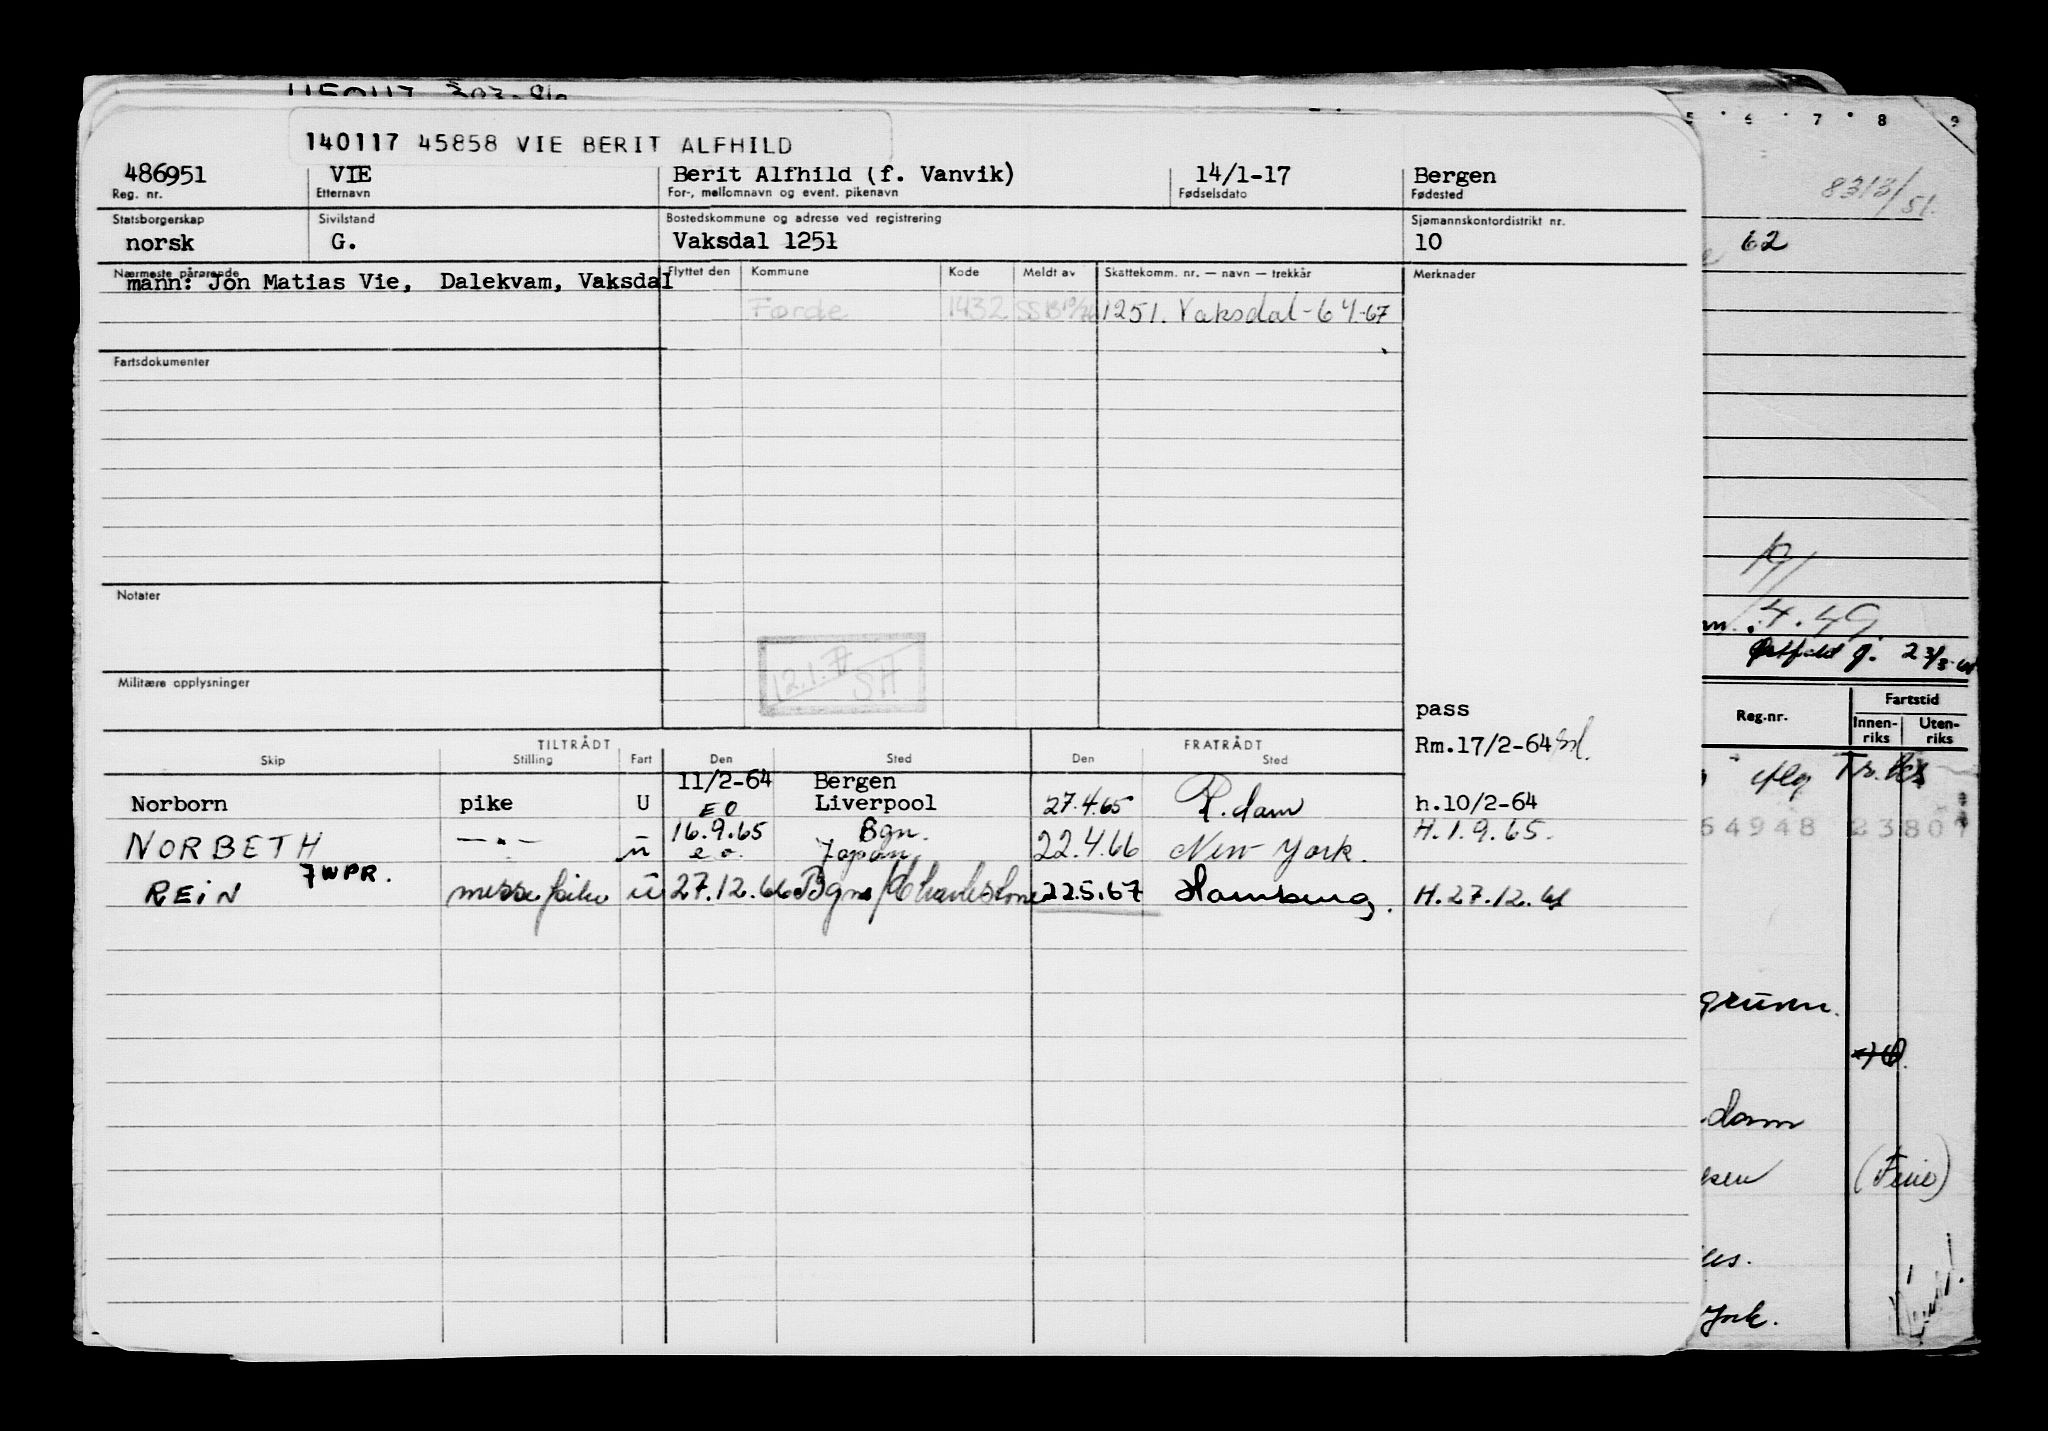 140117 45858 VIE BERIT ALFHILD
486951 VIE Berit Alfhild (f. Vanvik) 14/1-17 Bergen
Reg. nr. Etternavn For-, mellomnavn og event. pikenavn Fødselsdato Fødested
Statsborgerskap Sivilstand Bostedskommune og adresse ved registrering Sjømannskontordistrikt nr.
norsk G. Vaksdal 1251 10
Nærmeste pårørende Flyttet den Kommune Kode Meldt av Skattekomm. nr. — navn — trekkår Merknader
mann: Jon Matias Vie, Dalekvam, Vaksdal
Førde 1432 1251. Vaksdal - 64-67
Fartsdokumenter
Notater
12.1.77
SH
Militære opplysninger
pass
Rm.17/2-64
TILTRÅDT FRATRÅDT
Skip Stilling Fart Den Sted Den Sted
11/2-64 Bergen
Norborn pike U EO Liverpool 27.4.65 R.dam h.10/2-64
16.9.65 Bgn. H.1.9.65.
NORBETH — " — u e.o. Japan 22.4.66 New York.
7WPR.
REIN messepike u 27.12.66 Bgn/Charlestone 22.5.67 Hamburg. H.27.12.66
5 6 7 8 9
8313/51.
62
4.49
Reg.nr. Fartstid
Innen-riks Uten-riks
54948 23801
grunn.
dam
(Ferie)
York.